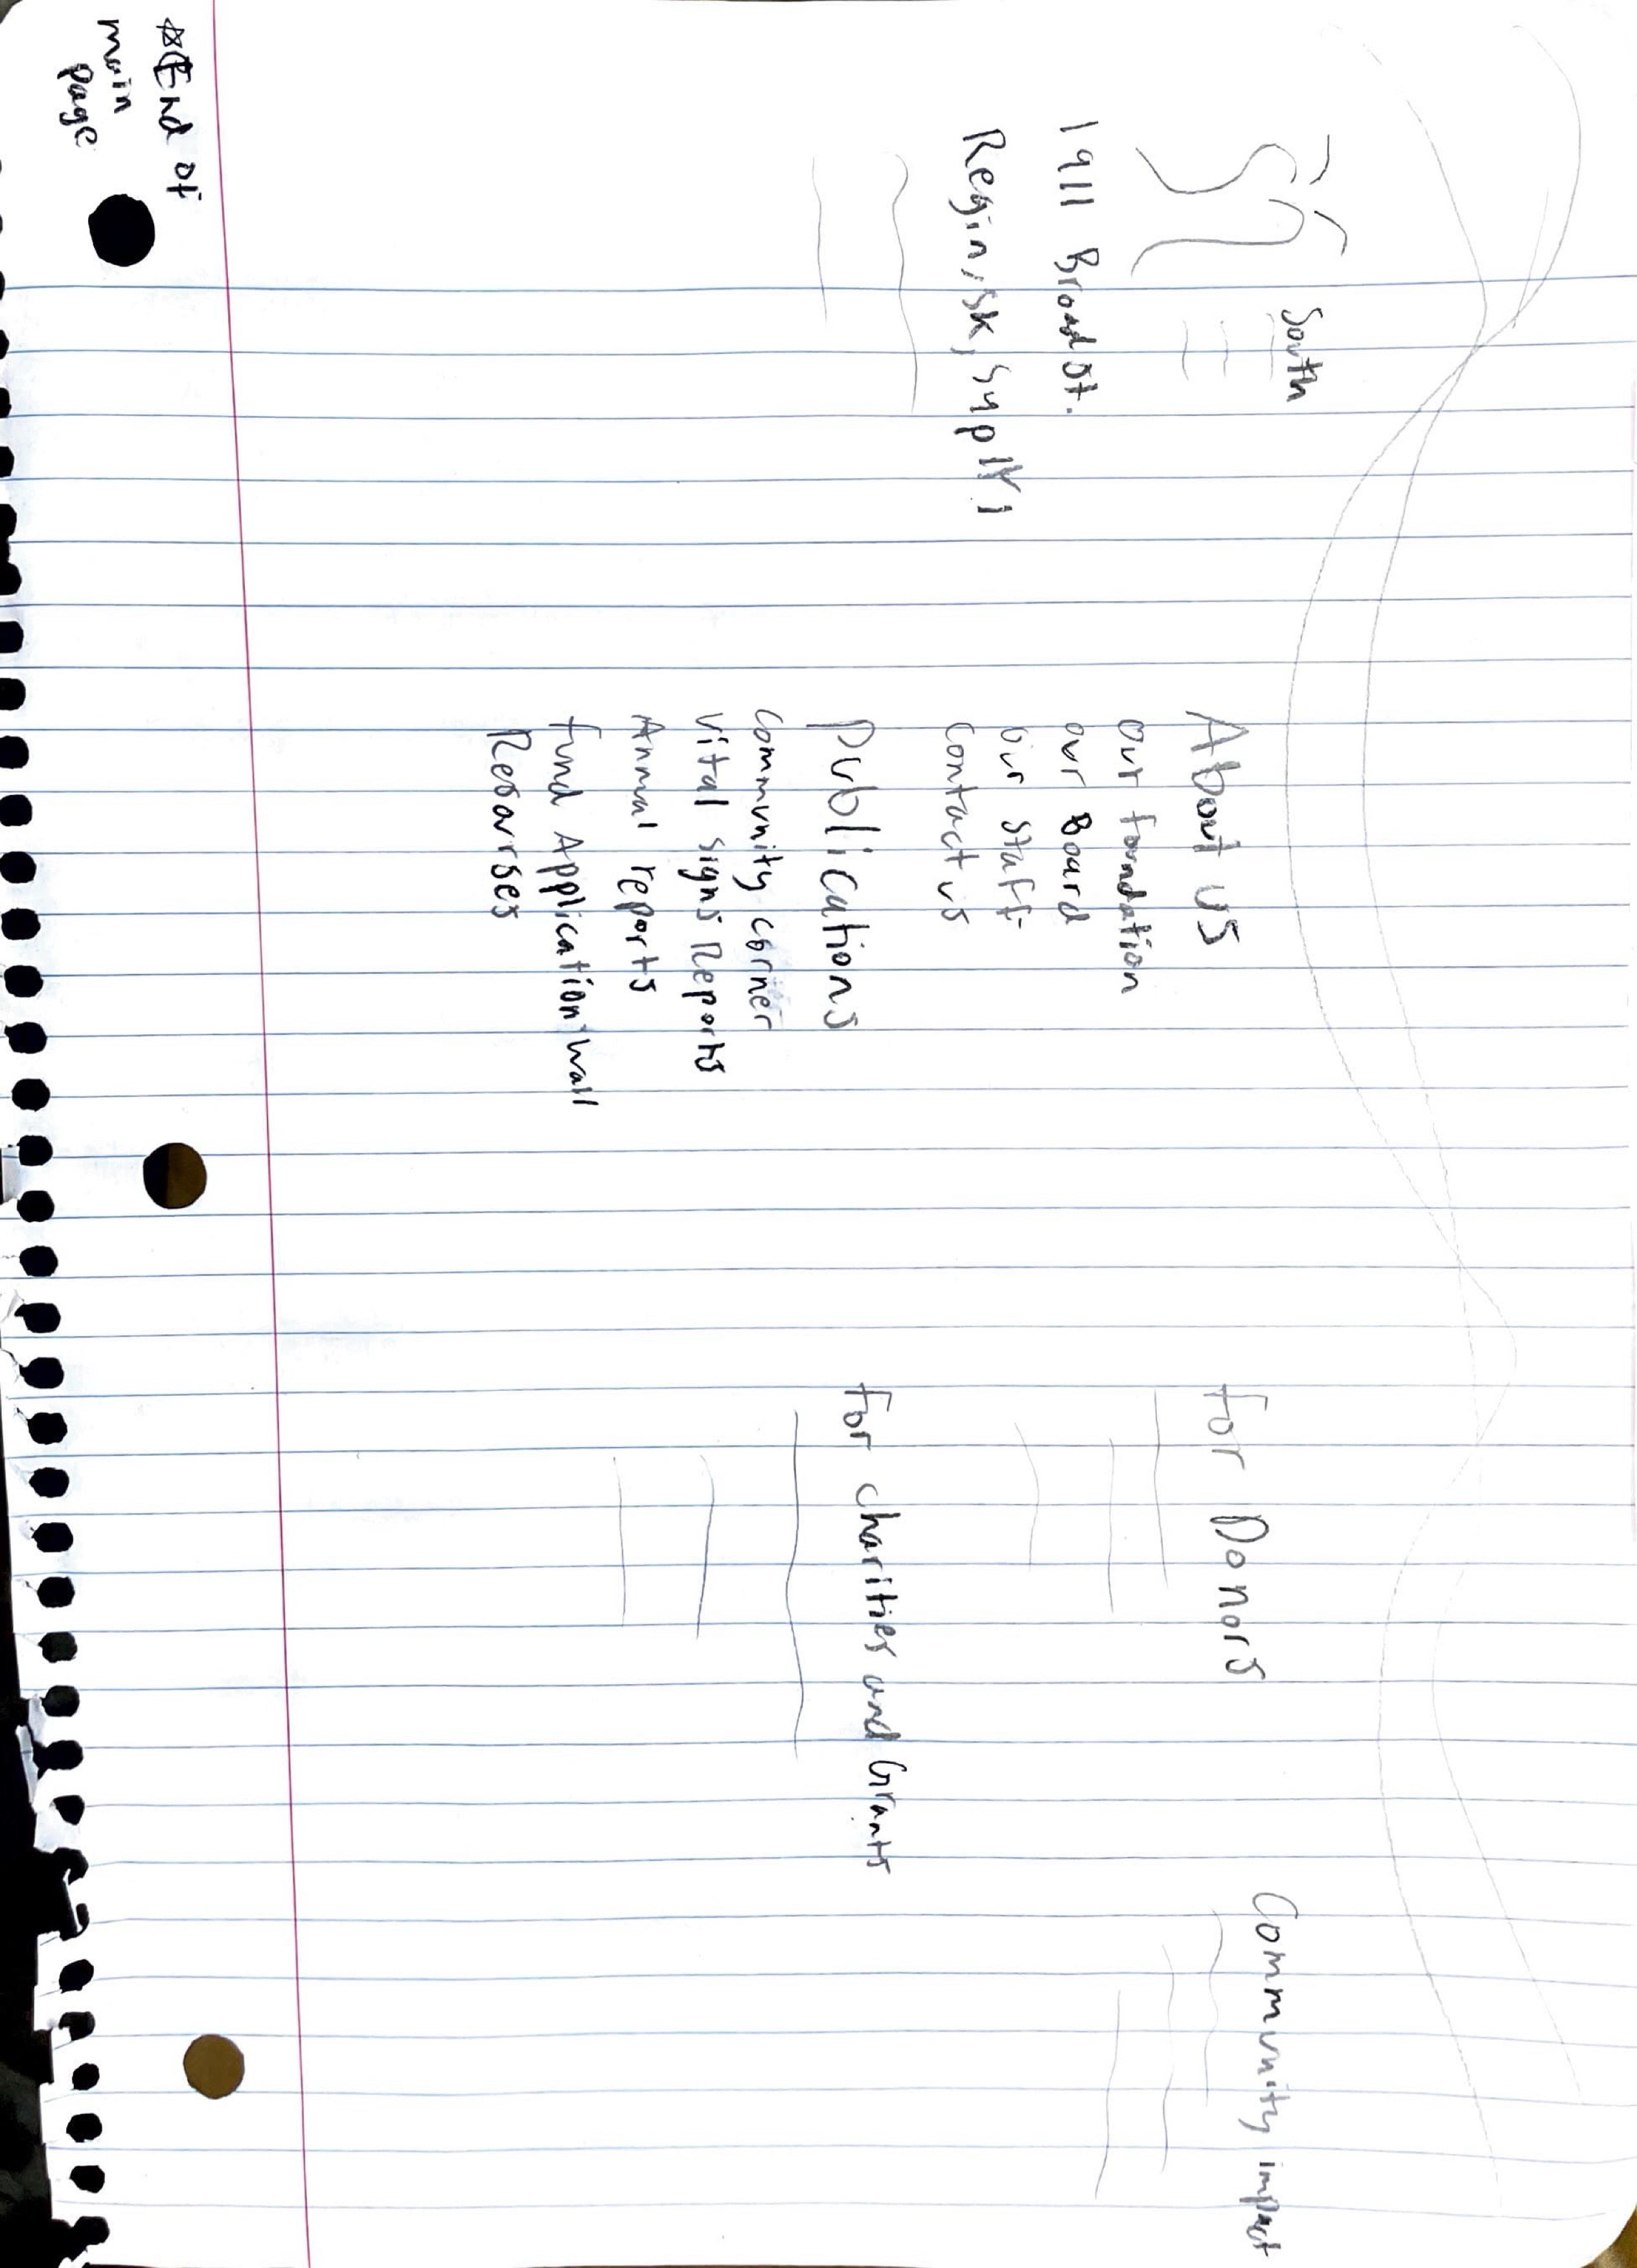 South
1911 Broad St.
Regin, SK, S4P 1K1
About us
our foundation
our Board
Our staff
Contact us
Publications
Community corner
Vital signs Reports
Annual reports
fund Application wall
Resourses
For Donors
For charities and Grants
Community impact
End of
main
page